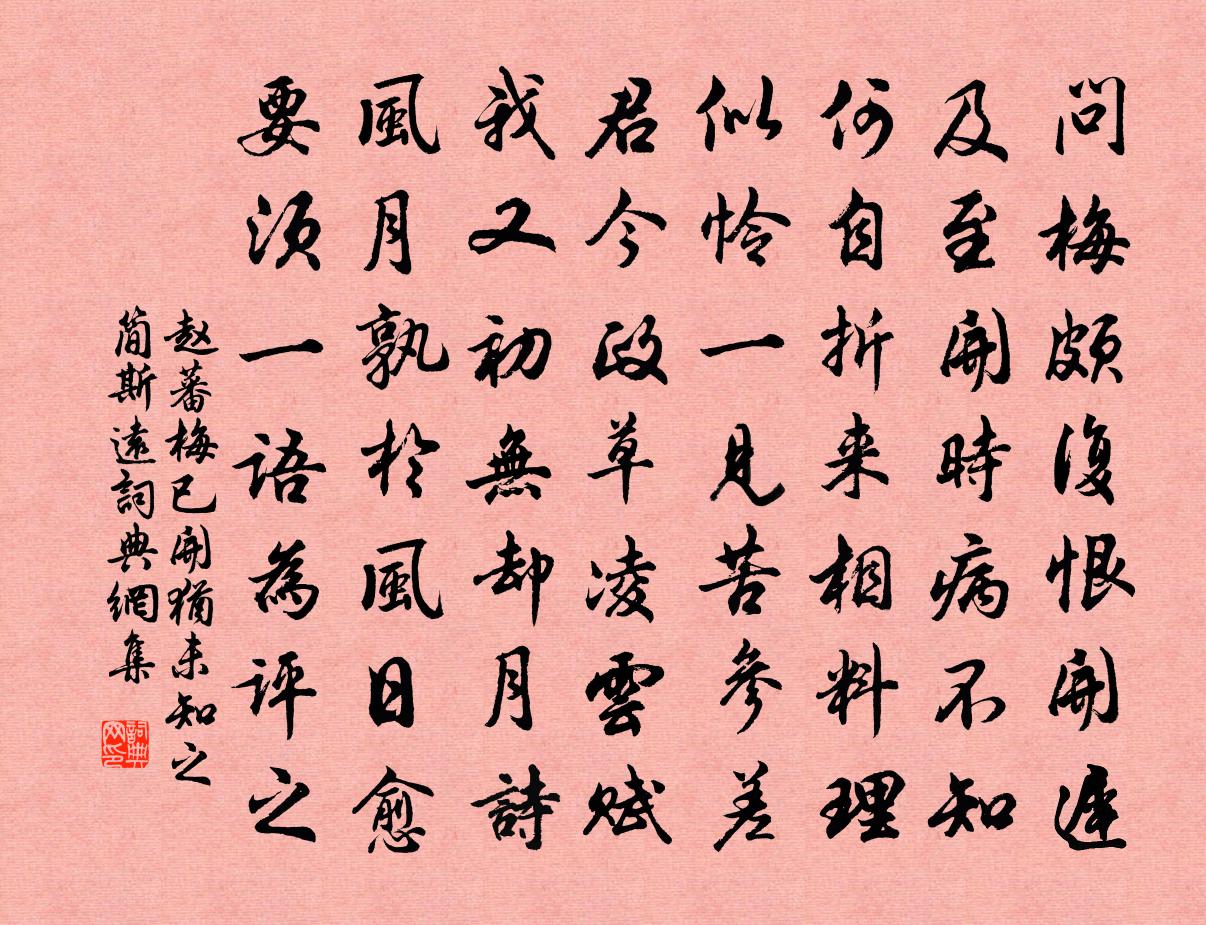 問梅頗復恨開遲
及至開時病不知
何自折来相料理
似怜一見苦參差
君今政草凌雲賦
我又初無却月詩
風月孰於風日愈
要須一語為評之
赵蕃梅已開猶未知之
简斯遠詞典網集
詞典网印